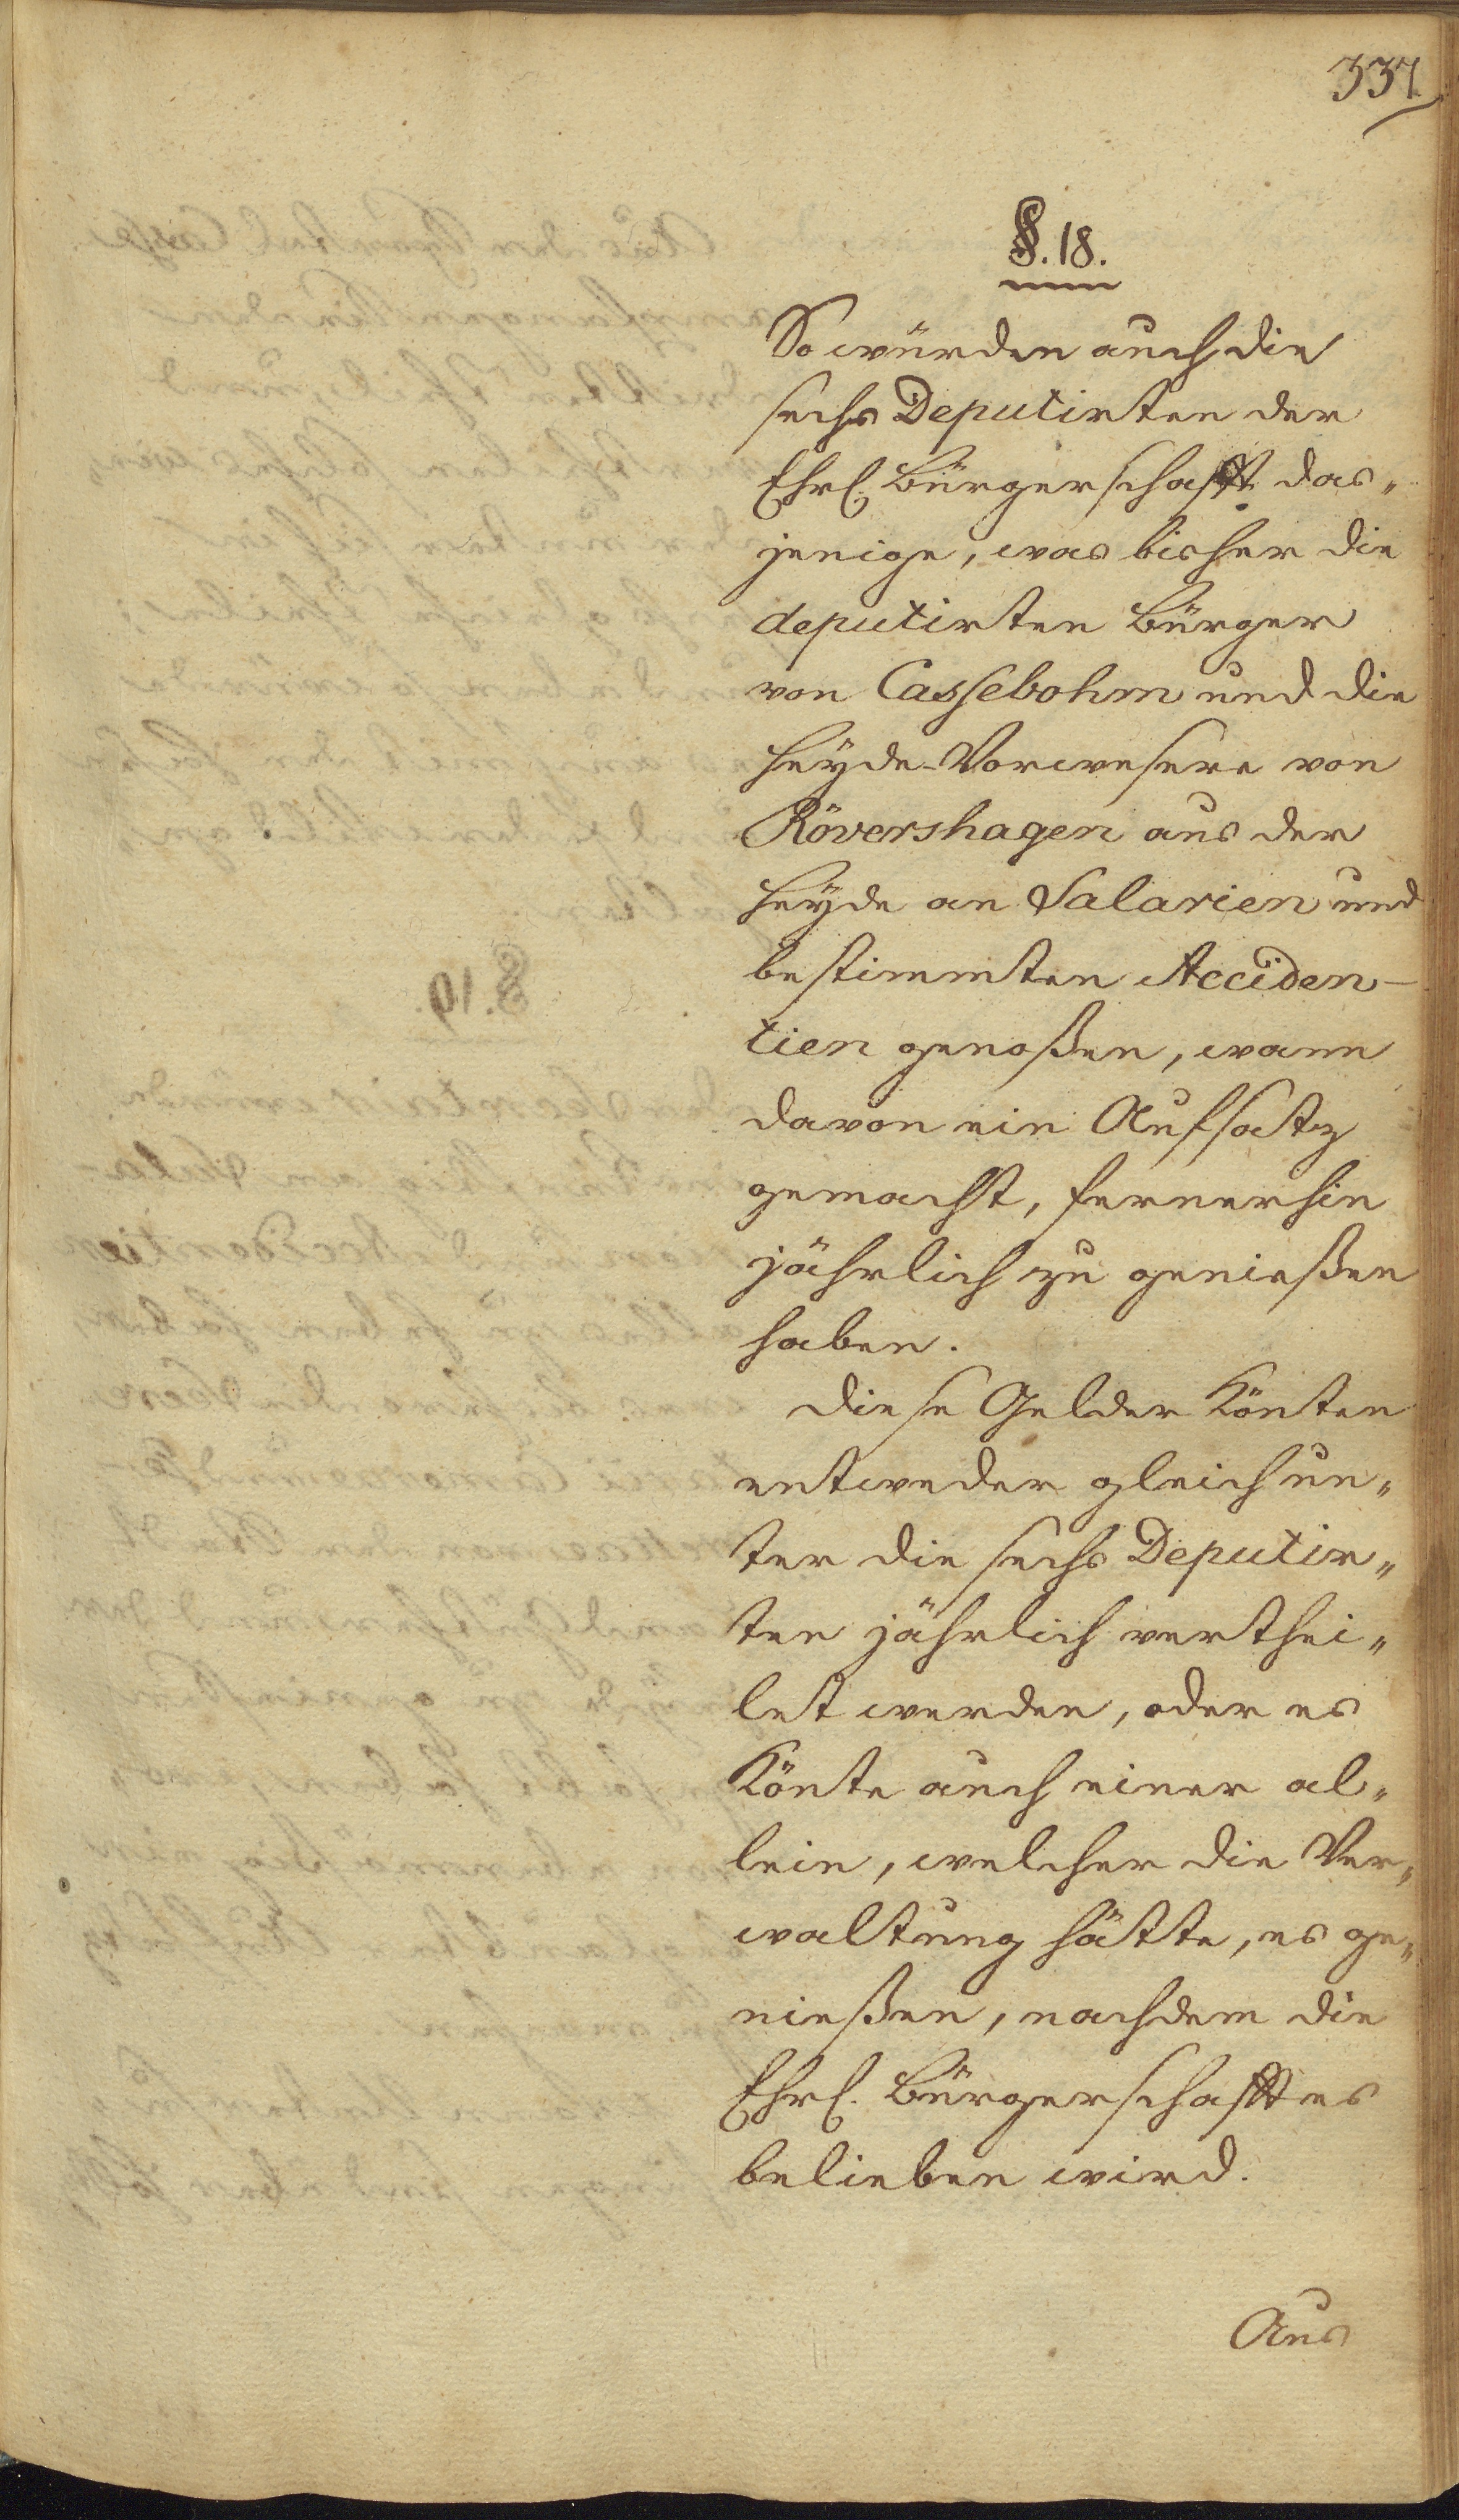 337
§. 18.
So würden auch die
sechs Deputirten der
Ehrl. Bürgerschafft das„
jenige, was bisher die
deputirten Bürger
von Cassebohm und die
Heyde-Vorwesere von
Rövershagen aus der
Heyde an Salarien und
bestimmten Acciden-
tien genoßen, wann
davon ein Aufsatz
gemacht, fernerhin
jährlich zu genießen
haben.
Diese Gelder könten
entweder gleich un„
ter die sechs Deputir„
ten jährlich verthei„
let werden, oder es
könte auch einer al„
lein, welcher die Ver„
waltung hätte, es ge„
nießen, nachdem die
Ehrl. Bürgerschafft es
belieben wird.
Aus